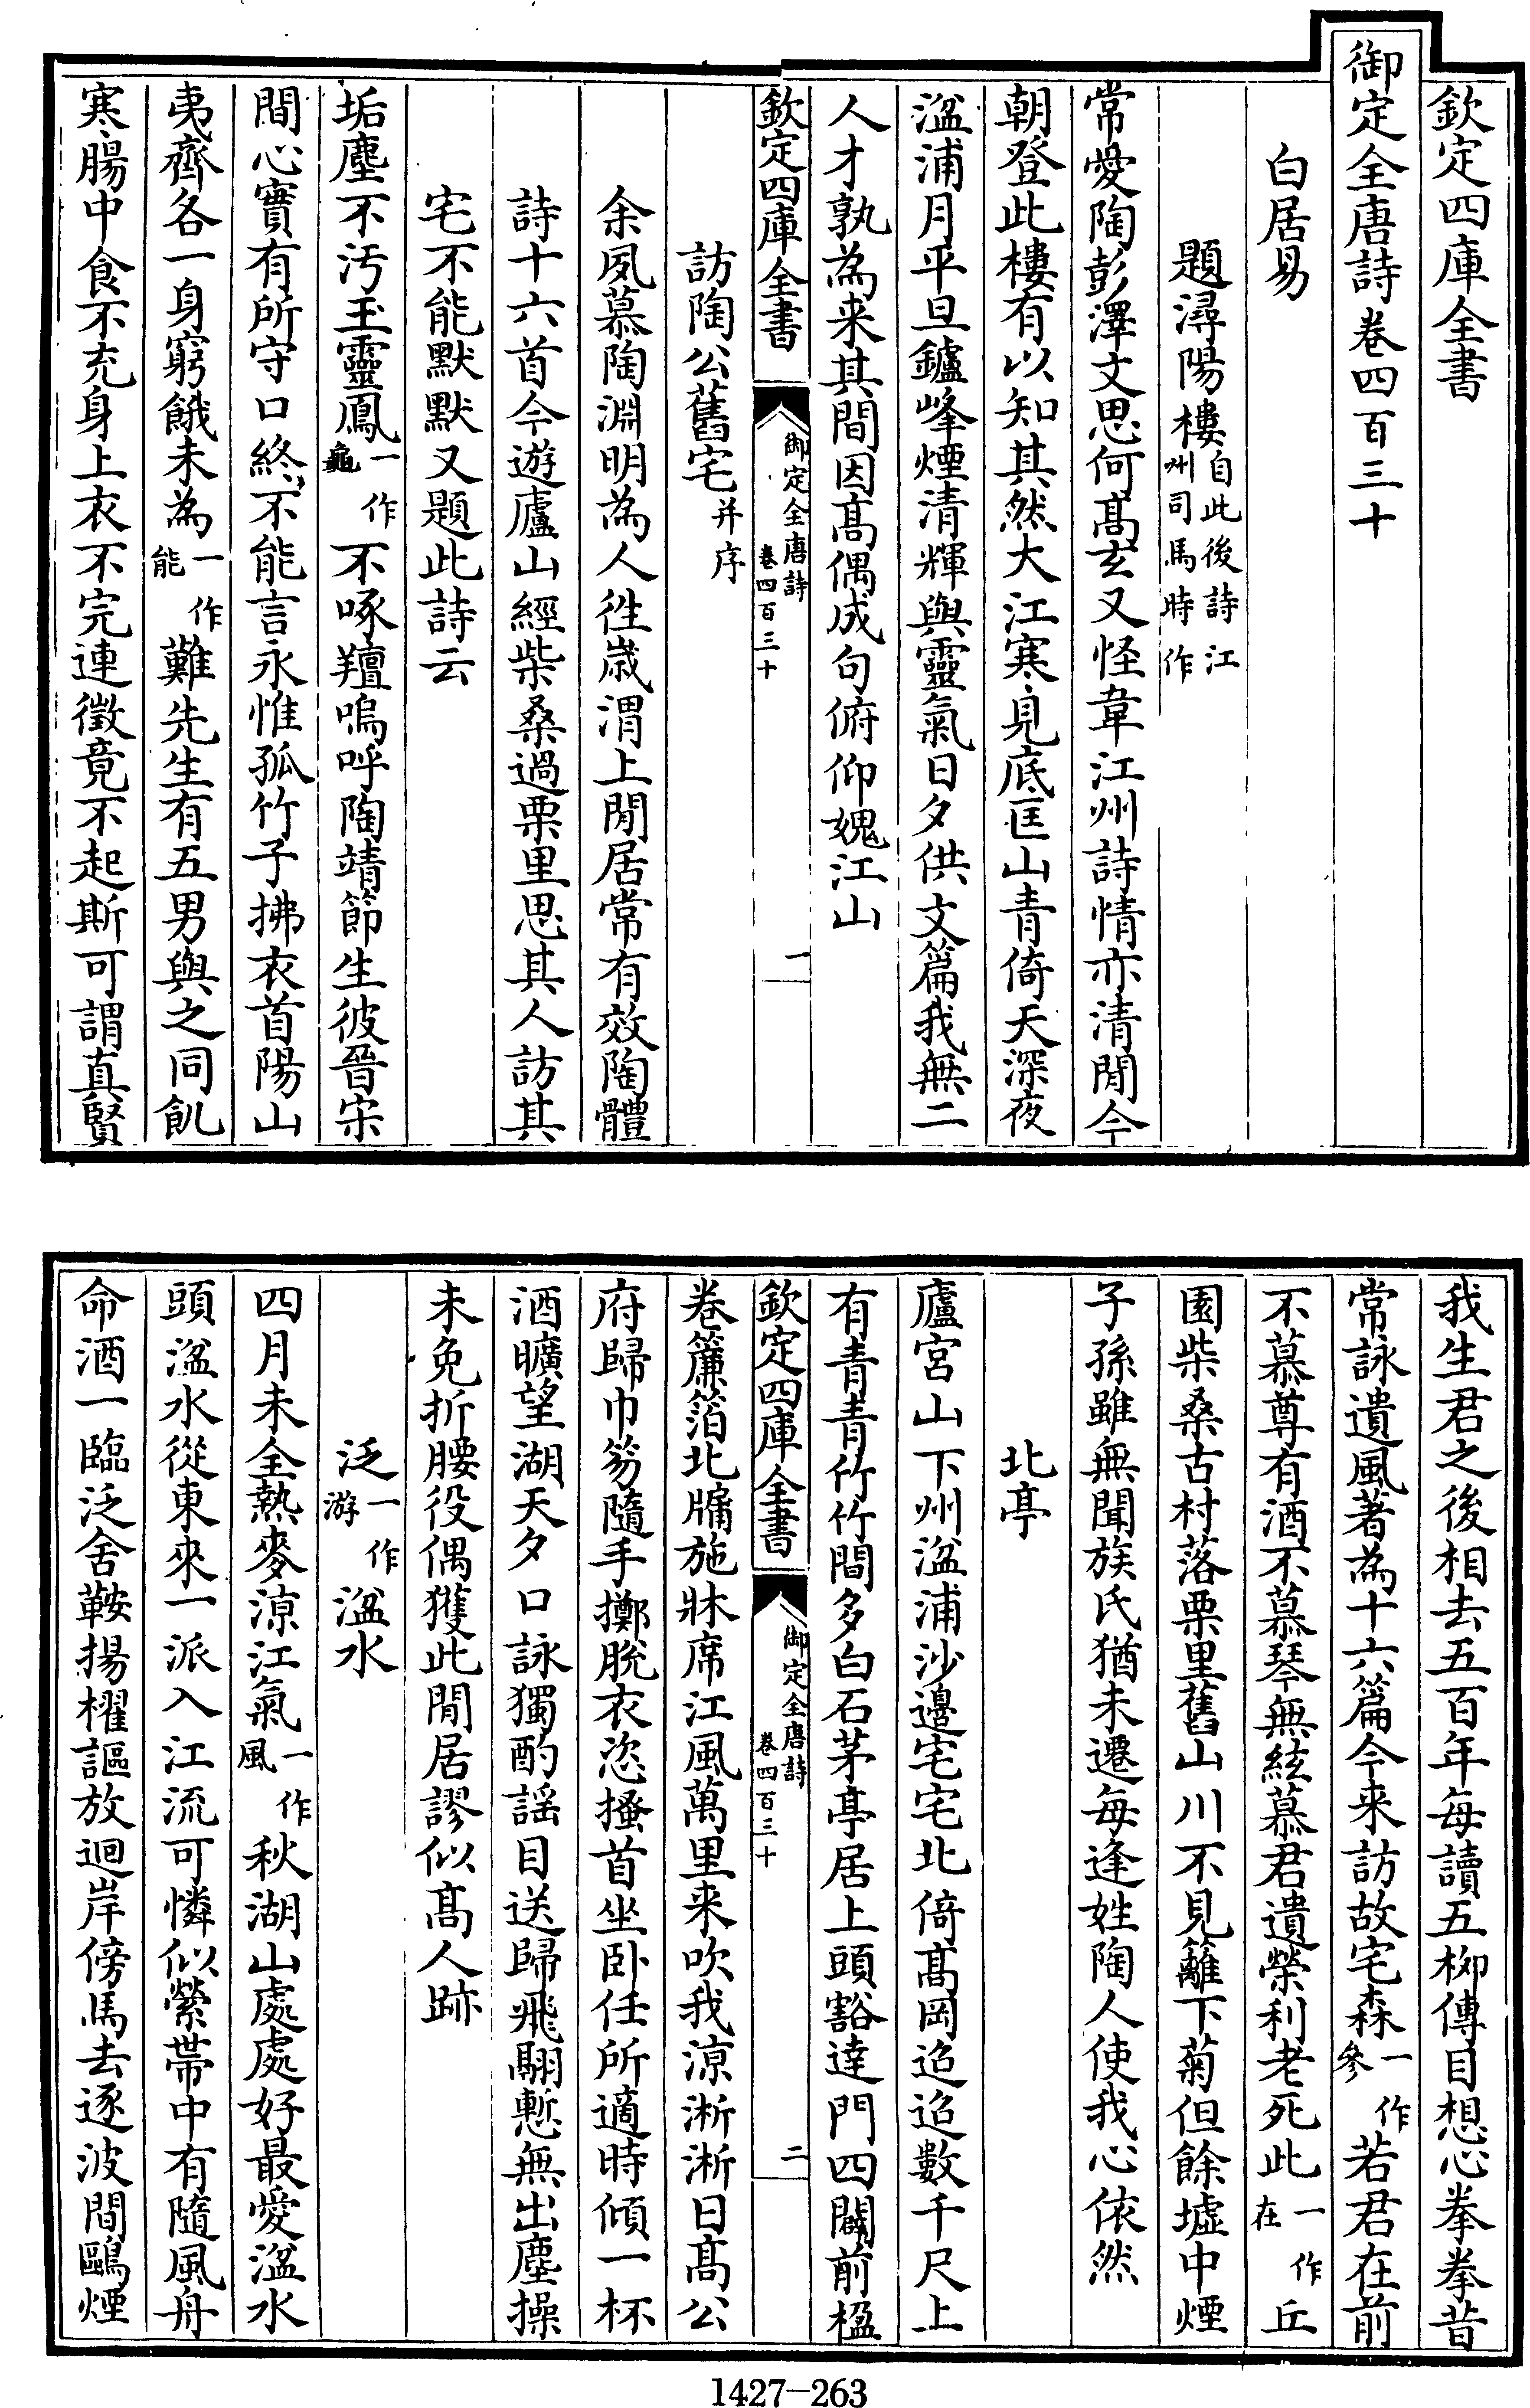 欽定四庫全書
御定全唐詩卷四百三十
白居易
題潯陽樓自此後詩江州司馬時作
常愛陶彭澤文思何高玄又怪韋江州詩情亦清閒今
朝登此樓有以知其然大江寒見底匡山青倚天深夜
湓浦月平旦鑪峰煙清輝與靈氣日夕供文篇我無二
人才孰為来其間因高偶成句俯仰媿江山
欽定四庫全書
御定全唐詩
卷四百三十
一
訪陶公舊宅并序
余夙慕陶淵明為人徃歲渭上閒居常有效陶體
詩十六首今遊廬山經柴桑過栗里思其人訪其
宅不能默默又題此詩云
垢塵不汚玉靈鳳一作龜不啄羶嗚呼陶靖節生彼晉宋
間心實有所守口終不能言永惟孤竹子拂衣首陽山
夷齊各一身窮餓未為一作能難先生有五男與之同飢
寒腸中食不充身上衣不完連徵竟不起斯可謂真賢
我生君之後相去五百年每讀五柳傳目想心拳拳昔
常詠遺風著為十六篇今来訪故宅森一作參若君在前
不慕尊有酒不慕琴無絃慕君遺榮利老死此一作在丘
園柴桑古村落栗里舊山川不見籬下菊但餘墟中煙
子孫雖無聞族氏猶未遷每逢姓陶人使我心依然
北亭
廬宮山下州湓浦沙邊宅宅北倚高岡迢迢數千尺上
有青青竹竹間多白石茅亭居上頭豁達門四闢前楹
欽定四庫全書
御定全唐詩
卷四百三十
二
卷簾箔北牖施牀席江風萬里来吹我涼淅淅日高公
府歸巾笏隨手擲脫衣恣搔首坐卧任所適時傾一杯
酒曠望湖天夕口詠獨酌謡目送歸飛翮慙無出塵操
未免折腰役偶獲此閒居謬似高人跡
泛一作游湓水
四月未全熱麥涼江氣一作風秋湖山處處好最愛湓水
頭湓水從東來一派入江流可憐似縈帶中有隨風舟
命酒一臨泛舍鞍揚櫂謳放迴岸傍馬去逐波間鷗煙
1427-263